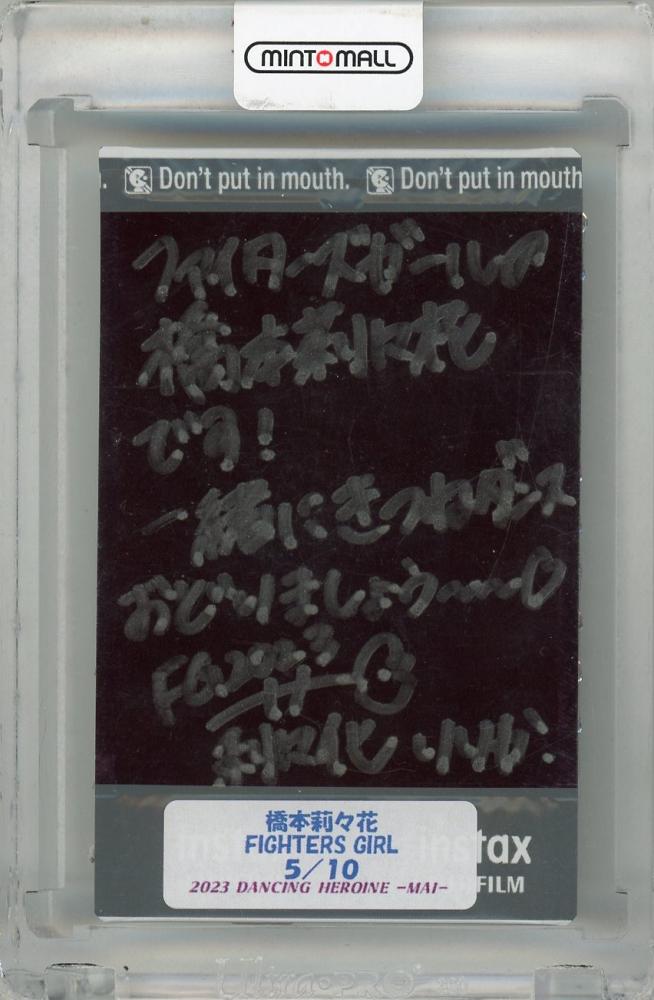 MINT MALL
Don't put in mouth. Don't put in mouth
ファイターズガールの
橋本莉々花
です!
一緒にきつねダンス
おどりましょう〜〜♡
FG2023
橋本莉々花
FIGHTERS GIRL
5/10
instax
FILM
2023 DANCING HEROINE -MAI-